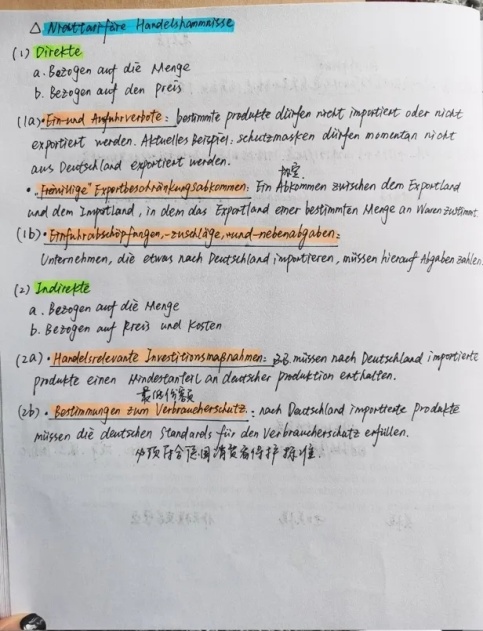 △ Nichttarifäre Handelshemmnisse
(1) Direkte
a. Bezogen auf die Menge
b. Bezogen auf den Preis
(1a)• Ein-und Ausfuhrverbote: bestimmte produkte dürfen nicht importiert oder nicht
exportiert werden. Aktuelles Beispiel: schutzmasken dürfen momentan nicht
aus Deutschland exportiert werden.
• „Freiwillige" Exportbeschränkungsabkommen: Ein Abkommen zwischen dem Exportland
und dem Importland, in dem das Exportland einer bestimmten Menge an Waren zustimmt.
(1b)• Einfuhrabschöpfungen,-zuschläge, und -nebenabgaben:
Unternehmen, die etwas nach Deutschland importieren, müssen hierauf Abgaben zahlen.
(2) Indirekte
a. Bezogen auf die Menge
b. Bezogen auf Preis und Kosten
(2a)• Handelsrelevante Investitionsmaßnahmen: z.B. müssen nach Deutschland importierte
produkte einen Mindestanteil an deutscher produktion enthalten.
最低份额
(2b)• Bestimmungen zum Verbraucherschutz: nach Deutschland importierte Produkte
müssen die deutschen Standards für den Verbraucherschutz erfüllen.
必须符合德国消费者保护标准.